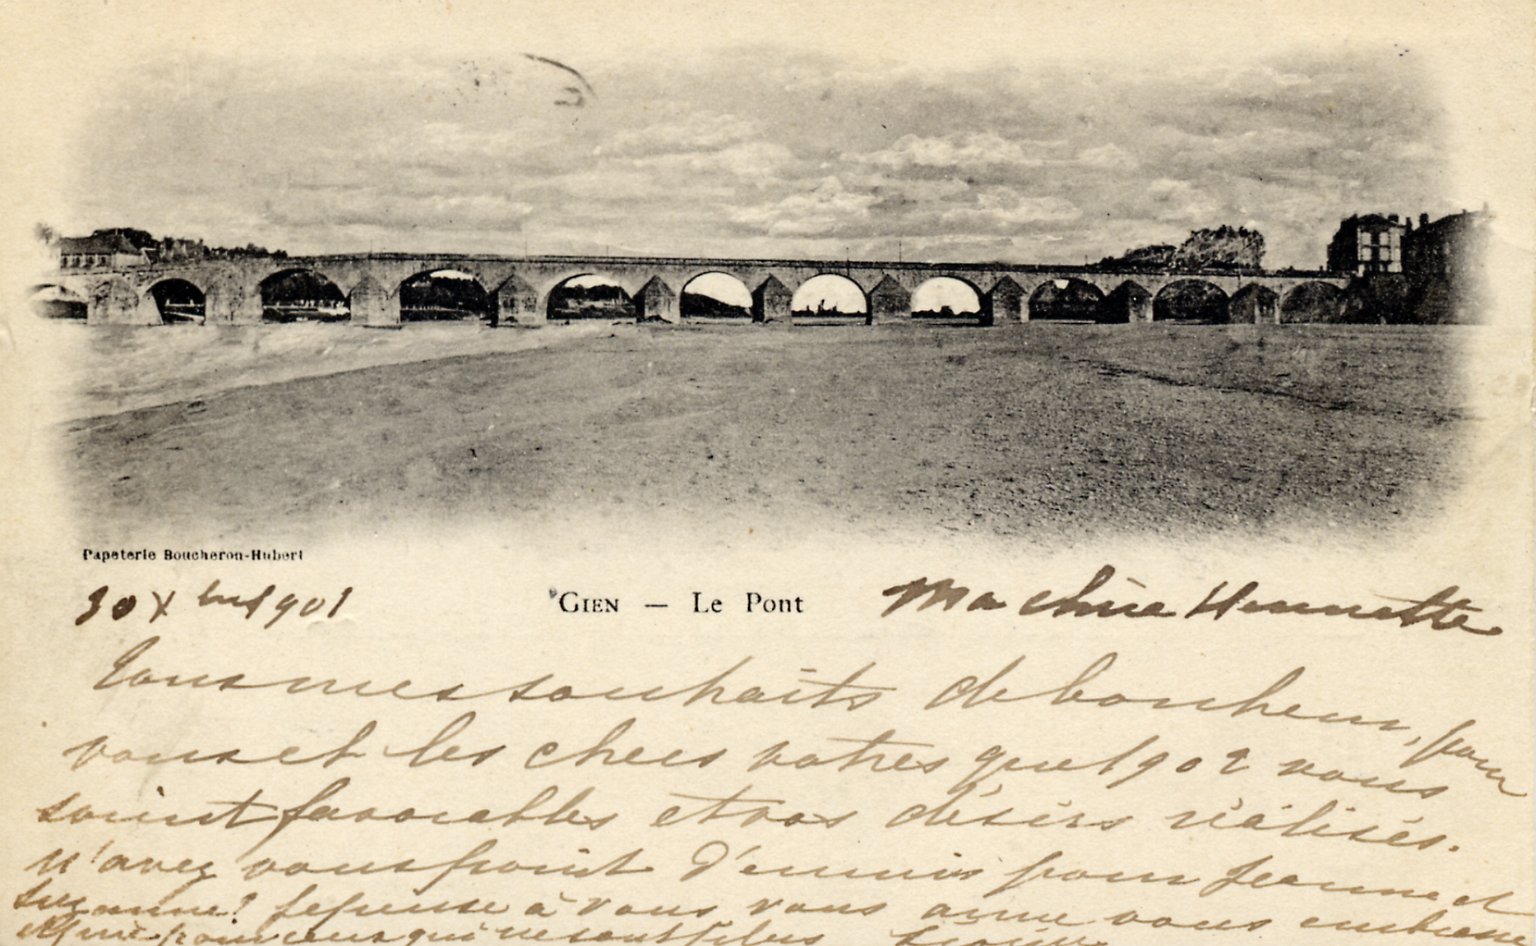 Papeterie Boucheron-Hubert
30 Xbre 1901
GIEN — Le Pont
Ma chère Henriette
Tous mes souhaits de bonheur, pour
vous et les chers vôtres que 1902 vous
soient favorables et vos désirs réalisés.
N'avez vous point d'ennuis pour Jeanne et
Suzanne? Je pense à vous vous aime vous embrasse
pour ceux qui ne sont plus